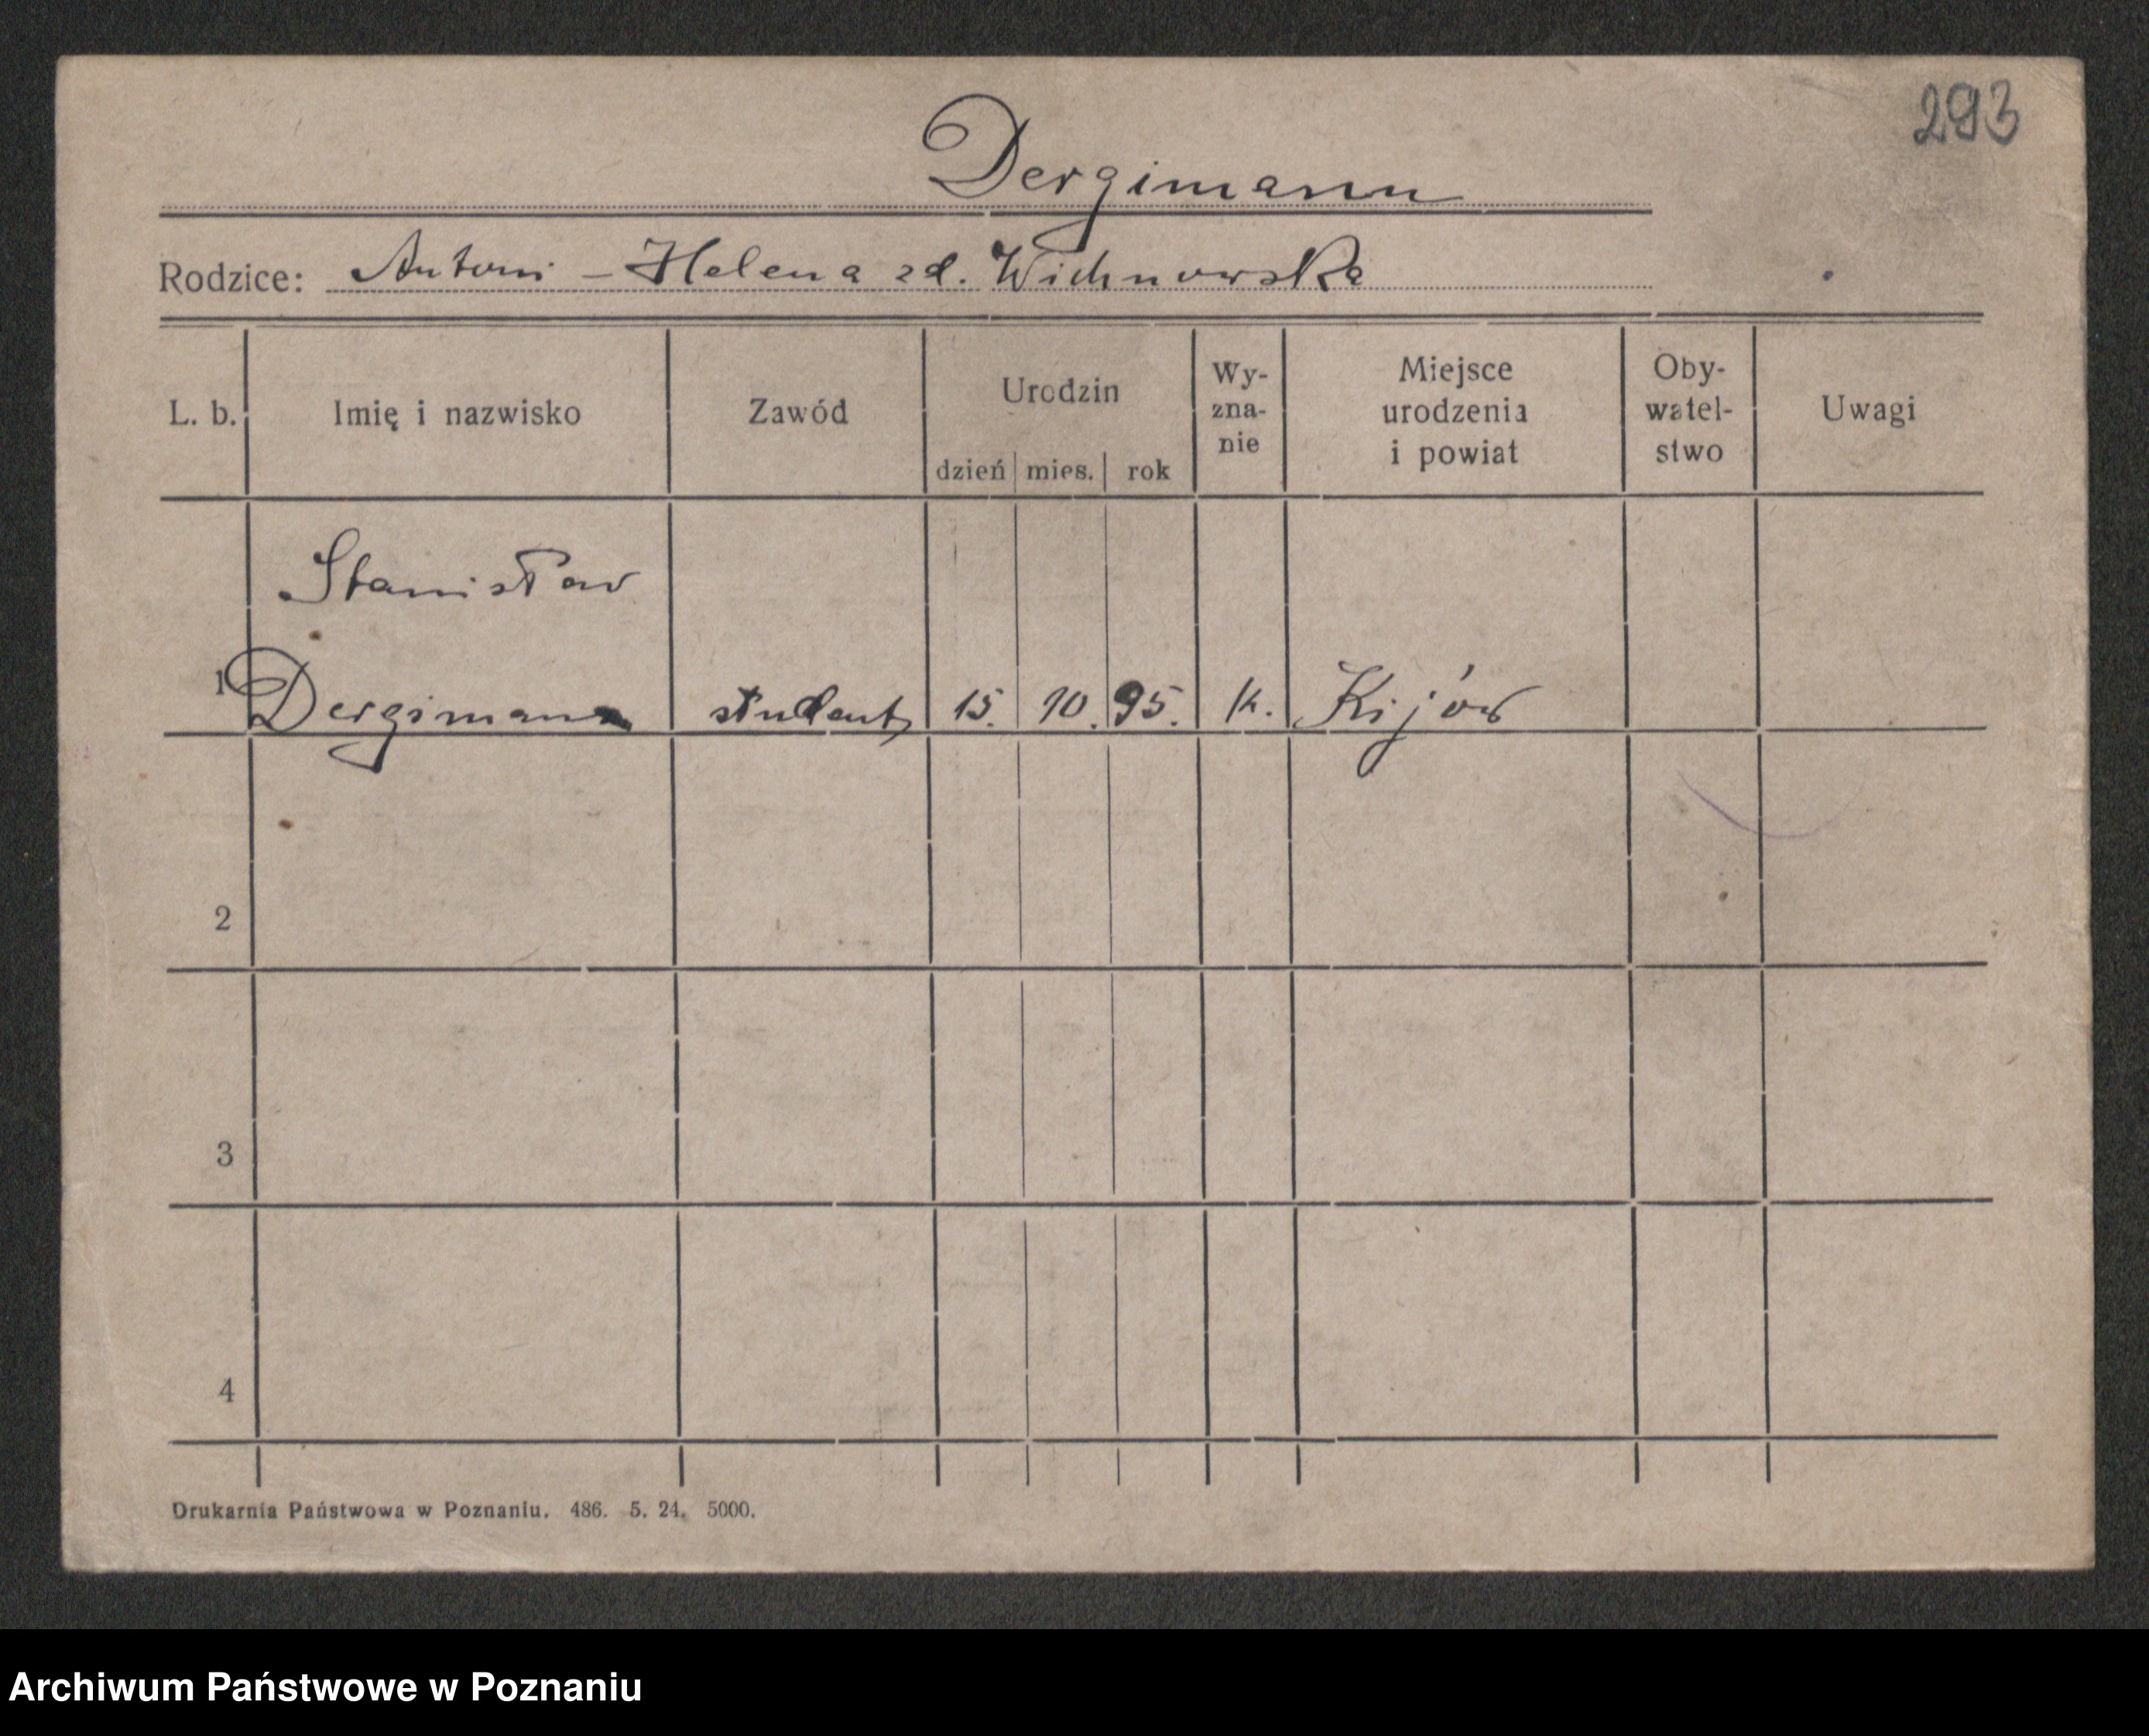 293
Dergimann
Rodzice: Antoni – Helena zd. Wichnowska
L. b. Imię i nazwisko Zawód Urodzin dzień mies. rok Wy-zna-nie Miejsce urodzenia i powiat Oby-watel-stwo Uwagi
Stanisław
1 Dergimann student 15. 10. 95. k. Kijów
2
3
4
Drukarnia Państwowa w Poznaniu. 486. 5. 24. 5000.
Archiwum Państwowe w Poznaniu